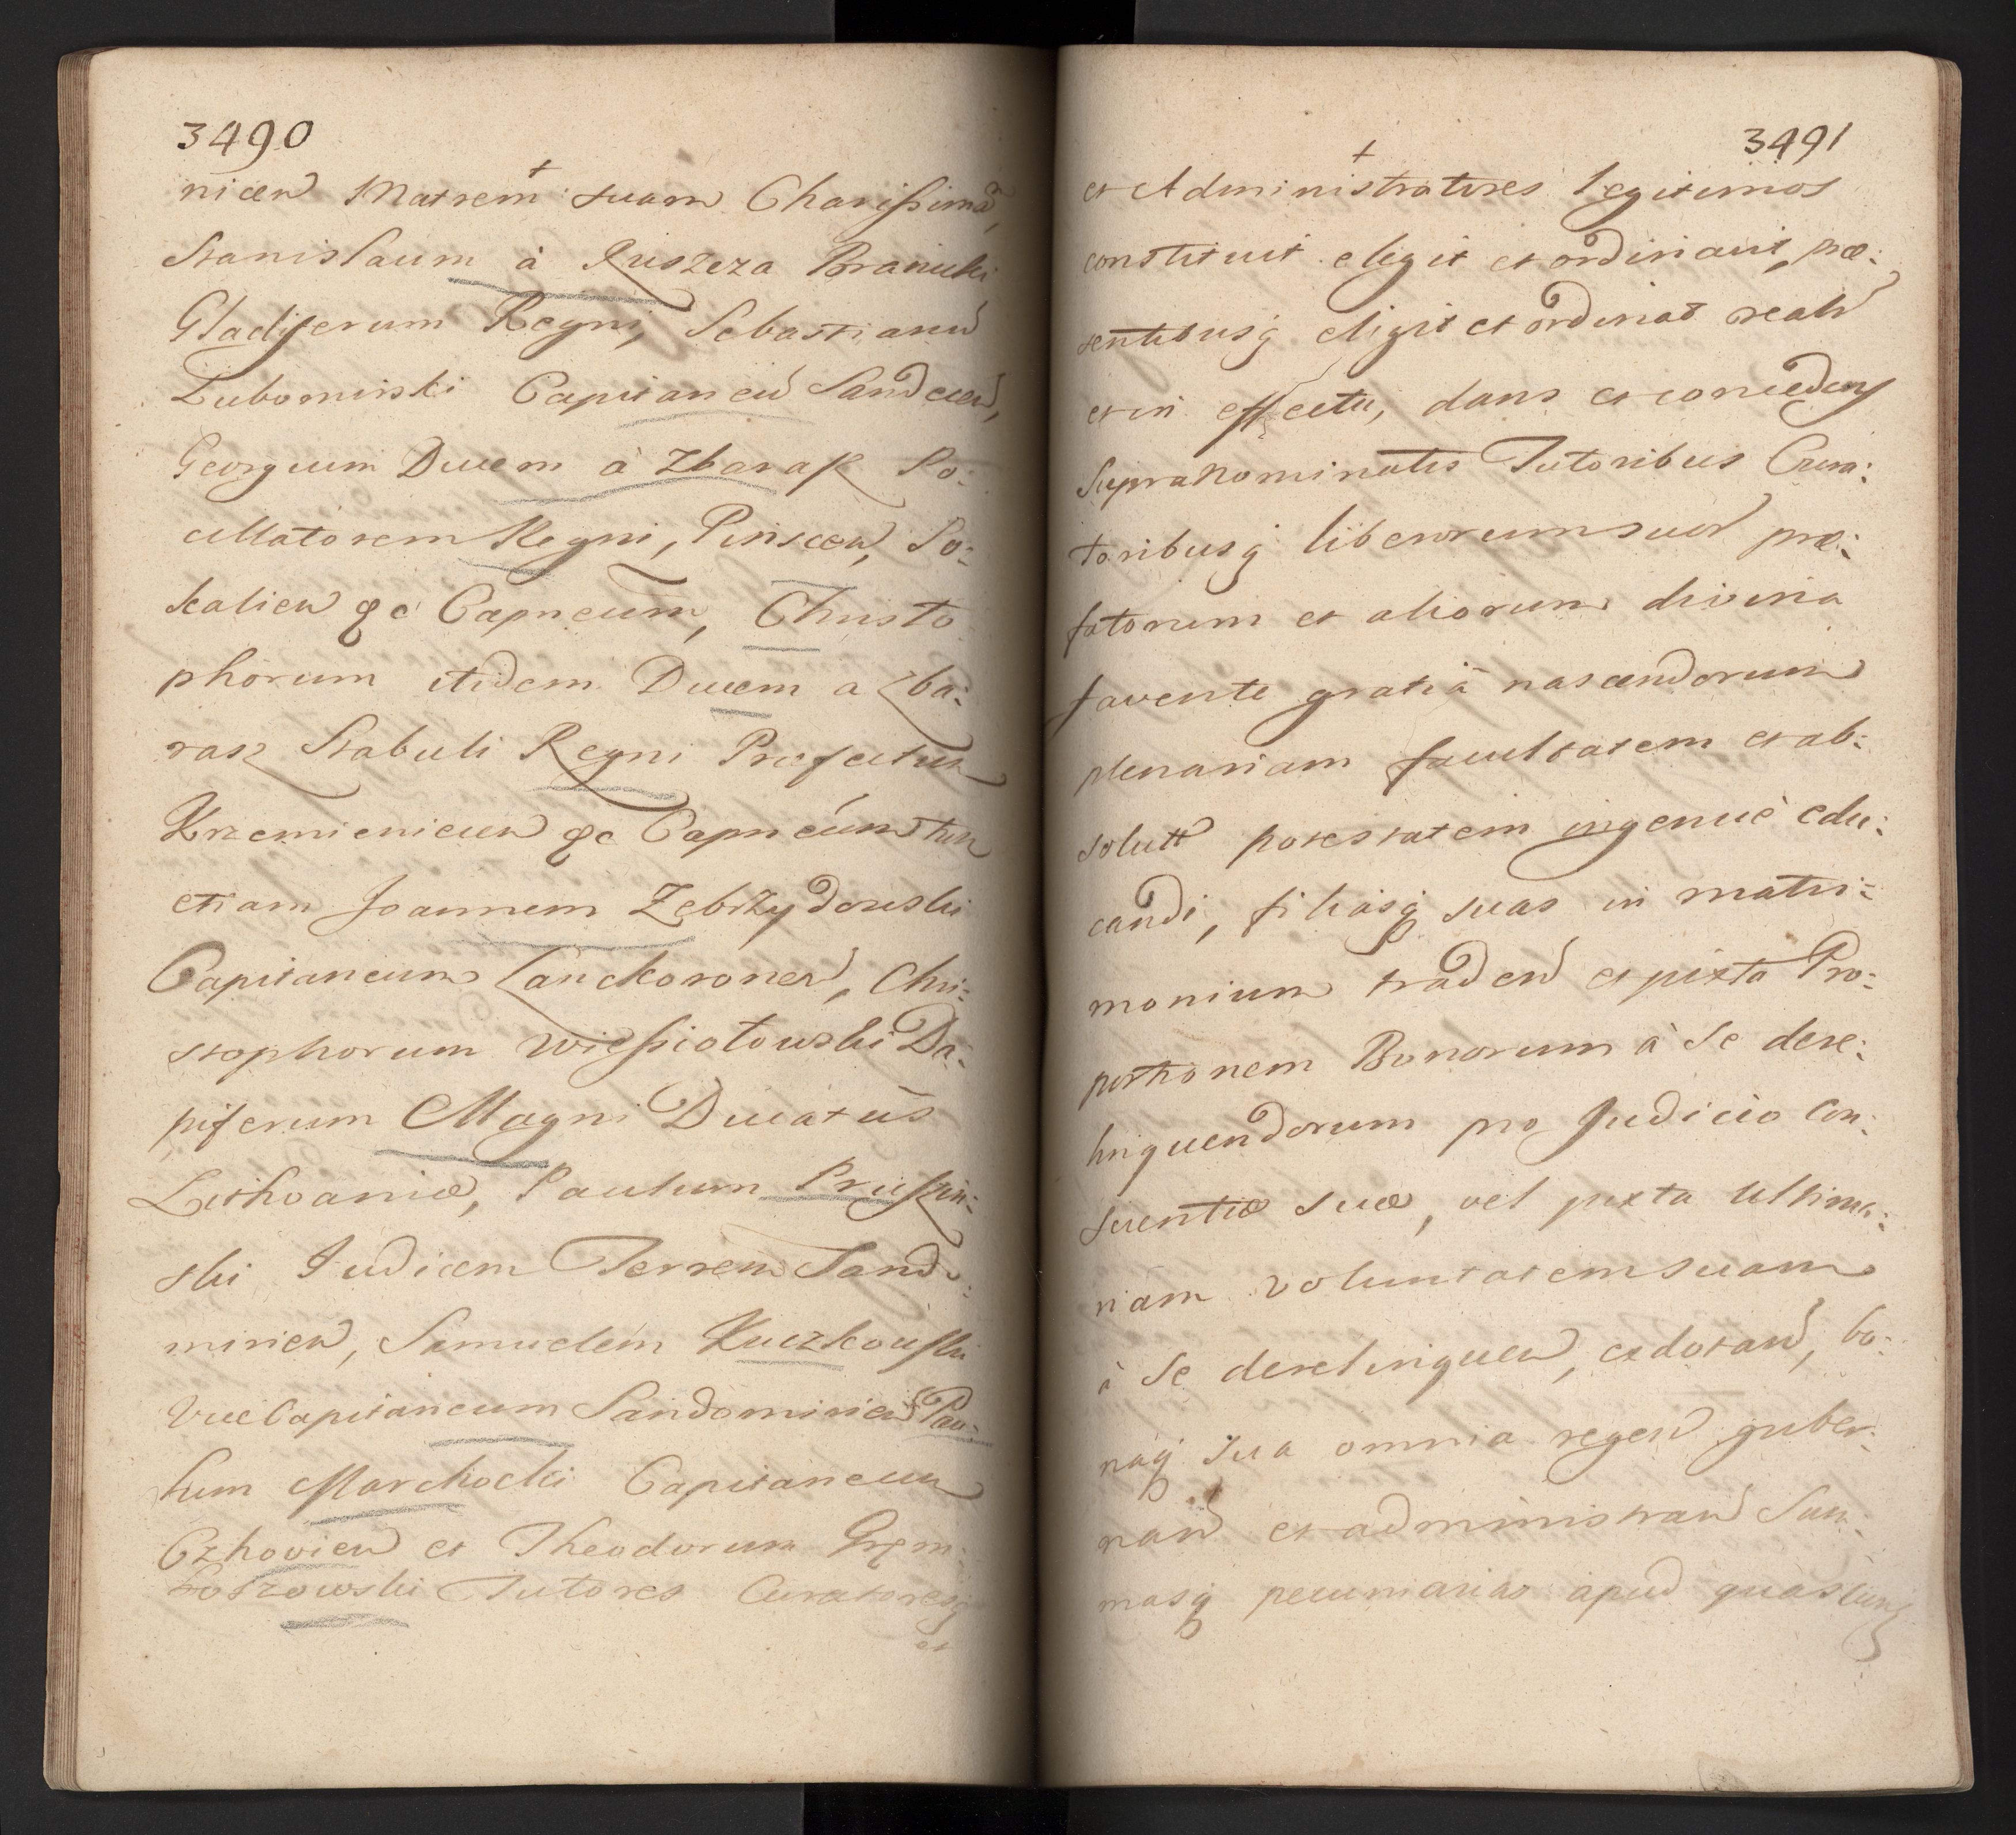 3490
nicen Matrem suam Charissimã,
Stanislaum à Ruszcza Branicki
Gladiferum Regni, Sebastianũ
Lubomirski Capitaneũ Sandecen,
Georgium Ducem à Zbaraz Po:
cillatorem Regni, Pinscen, So:
kalien &c Capneum, Christo
phorum itidem Ducem a Zba:
raz Stabuli Regni Præfectum
Krzemienicen &c Capneum tum
etiam Joannem Zebrzydowski
Capitaneum Lanckoronen, Chri:
stophorum Wiessiołowski Da:
piferum Magni Ducatus
Lithvaniæ, Paulum
ski Judicem Terren Sando:
mirien, Samuelem Kuczkowski
Vice Capitaneum Sandomirien Pau:
lum Marchocki Capitaneum
Czhovien et Theodorum
Tutores Curatoresq
et
3491
et Administratores legitimos
constituit elegit et ordinavit, præ:
sentibusq eligit et ordinat realr
et in effectu, dans et concedens
Supra Nominatis Tutoribus Cura:
toribusq liberorum suor præ:
fatorum et aliorum divina
favente gratiâ nascendorum
plenariam facultatem et ab:
solutã potestatem ingenuè edu:
candi, filiasq suas in matri:
monium traden et juxta Pro:
portionem Bonorum à Se dere:
linquendorum pro Judicio Con:
scientiæ suæ, vel juxta Ultima:
riam voluntatem suam
à Se derelinquen, exdotan, bo:
naq sua omnia regen guber:
nan et administran Sum:
masq pecuniarias apud quascunq